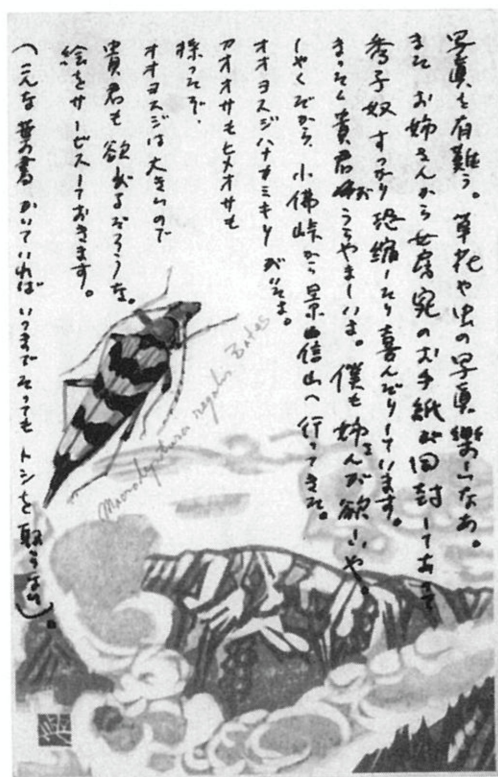 写真を有難う。草花や虫の写真楽しいなあ。
またお姉さんから女房宛のお手紙が同封してあって
秀子奴すっかり恐縮したり喜んだりしています。
まったく貴君がうらやましいよ。僕も姉さんが欲しいや。
しゃくだから、小佛峠から景信山へ行ってきた。
オオヨスジハナカミキリがいたよ。
アオオサもヒメオサも
採ったぞ、
オオヨスジは大きいので
貴君も欲がるだろうな。
絵をサービスしておきます。
(こんな葉書かいていれば いつまでたっても トシを取らない)。
Macroleptura regalis Bates